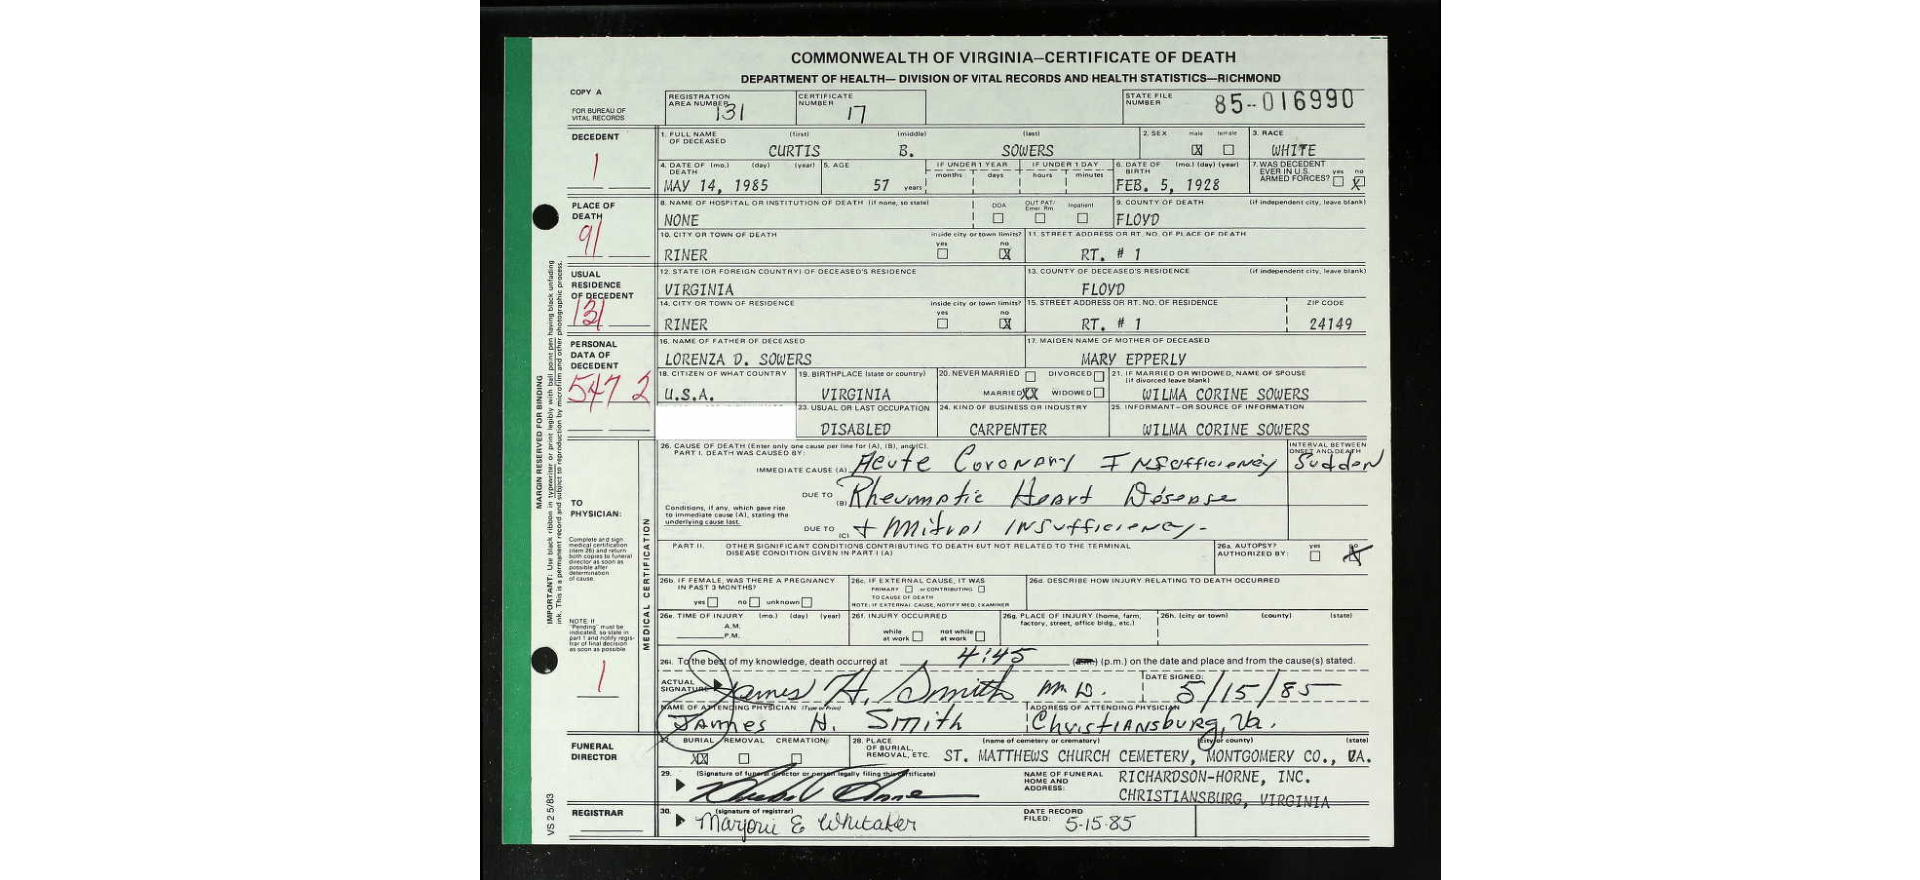 COMMONWEALTH OF VIRGINIA—CERTIFICATE OF DEATH
DEPARTMENT OF HEALTH— DIVISION OF VITAL RECORDS AND HEALTH STATISTICS—RICHMOND
COPY A
FOR BUREAU OF VITAL RECORDS
REGISTRATION AREA NUMBER 131
CERTIFICATE NUMBER 17
STATE FILE NUMBER 85-016990
DECEDENT
1
1. FULL NAME OF DECEASED (first) (middle) (last)
CURTIS B. SOWERS
2. SEX male female
X
3. RACE
WHITE
4. DATE OF DEATH (mo.) (day) (year)
MAY 14, 1985
5. AGE
57 years
IF UNDER 1 YEAR months days
IF UNDER 1 DAY hours minutes
6. DATE OF BIRTH (mo.) (day) (year)
FEB. 5, 1928
7. WAS DECEDENT EVER IN U.S. ARMED FORCES? yes no
X
PLACE OF DEATH
91
8. NAME OF HOSPITAL OR INSTITUTION OF DEATH (if none, so state)
NONE
DOA OUT PAT/ Emer. Rm. Inpatient
9. COUNTY OF DEATH (if independent city, leave blank)
FLOYD
10. CITY OR TOWN OF DEATH inside city or town limits? yes no
RINER X
11. STREET ADDRESS OR RT. NO. OF PLACE OF DEATH
RT. # 1
USUAL RESIDENCE OF DECEDENT
131
12. STATE (OR FOREIGN COUNTRY) OF DECEASED'S RESIDENCE
VIRGINIA
13. COUNTY OF DECEASED'S RESIDENCE (if independent city, leave blank)
FLOYD
14. CITY OR TOWN OF RESIDENCE inside city or town limits? yes no
RINER X
15. STREET ADDRESS OR RT. NO. OF RESIDENCE
RT. # 1
ZIP CODE
24149
PERSONAL DATA OF DECEDENT
547 2
16. NAME OF FATHER OF DECEASED
LORENZA D. SOWERS
17. MAIDEN NAME OF MOTHER OF DECEASED
MARY EPPERLY
18. CITIZEN OF WHAT COUNTRY
U.S.A.
19. BIRTHPLACE (state or country)
VIRGINIA
20. NEVER MARRIED DIVORCED
MARRIED XX WIDOWED
21. IF MARRIED OR WIDOWED, NAME OF SPOUSE (if divorced leave blank)
WILMA CORINE SOWERS
23. USUAL OR LAST OCCUPATION
DISABLED
24. KIND OF BUSINESS OR INDUSTRY
CARPENTER
25. INFORMANT—OR SOURCE OF INFORMATION
WILMA CORINE SOWERS
MARGIN RESERVED FOR BINDING
IMPORTANT: Use black ribbon in typewriter or print legibly with ball point pen having black unfading
ink. This is a permanent record and subject to reproduction by microfilm and other photographic process.
TO PHYSICIAN:
Complete and sign medical certification (item 26) and return both copies to funeral director as soon as possible after determination of cause.
NOTE: If "Pending" must be indicated, so state in part 1 and notify registrar of final decision as soon as possible
1
MEDICAL CERTIFICATION
26. CAUSE OF DEATH (Enter only one cause per line for (A), (B), and (C).
PART I. DEATH WAS CAUSED BY:
INTERVAL BETWEEN ONSET AND DEATH
IMMEDIATE CAUSE (A) Acute Coronary Insufficiency Sudden
DUE TO (B) Rheumatic Heart Disease
Conditions, if any, which gave rise to immediate cause (A), stating the underlying cause last.
DUE TO (C) + Mitral Insufficiency-
PART II. OTHER SIGNIFICANT CONDITIONS CONTRIBUTING TO DEATH BUT NOT RELATED TO THE TERMINAL DISEASE CONDITION GIVEN IN PART I (A)
26a. AUTOPSY? AUTHORIZED BY: yes no
X
26b. IF FEMALE, WAS THERE A PREGNANCY IN PAST 3 MONTHS?
yes no unknown
26c. IF EXTERNAL CAUSE, IT WAS
PRIMARY or CONTRIBUTING
TO CAUSE OF DEATH
NOTE: IF EXTERNAL CAUSE, NOTIFY MED. EXAMINER
26d. DESCRIBE HOW INJURY RELATING TO DEATH OCCURRED
26e. TIME OF INJURY (mo.) (day) (year)
A.M.
P.M.
26f. INJURY OCCURRED
while at work not while at work
26g. PLACE OF INJURY (home, farm, factory, street, office bldg., etc.)
26h. (city or town) (county) (state)
26i. To the best of my knowledge, death occurred at 4:45 (a.m.) (p.m.) on the date and place and from the cause(s) stated.
ACTUAL SIGNATURE James H. Smith M.D.
DATE SIGNED: 5/15/85
NAME OF ATTENDING PHYSICIAN (Type or Print)
James H. Smith
ADDRESS OF ATTENDING PHYSICIAN
Christiansburg, Va.
FUNERAL DIRECTOR
27. BURIAL REMOVAL CREMATION
XX
28. PLACE OF BURIAL, REMOVAL, ETC. (name of cemetery or crematory) (city or county) (state)
ST. MATTHEWS CHURCH CEMETERY, MONTGOMERY CO., VA.
29. (Signature of funeral director or person legally filing this certificate)
NAME OF FUNERAL HOME AND ADDRESS:
RICHARDSON-HORNE, INC.
CHRISTIANSBURG, VIRGINIA
REGISTRAR
30. (signature of registrar)
Marjorie E Whitaker
DATE RECORD FILED: 5-15-85
VS 2 5/83